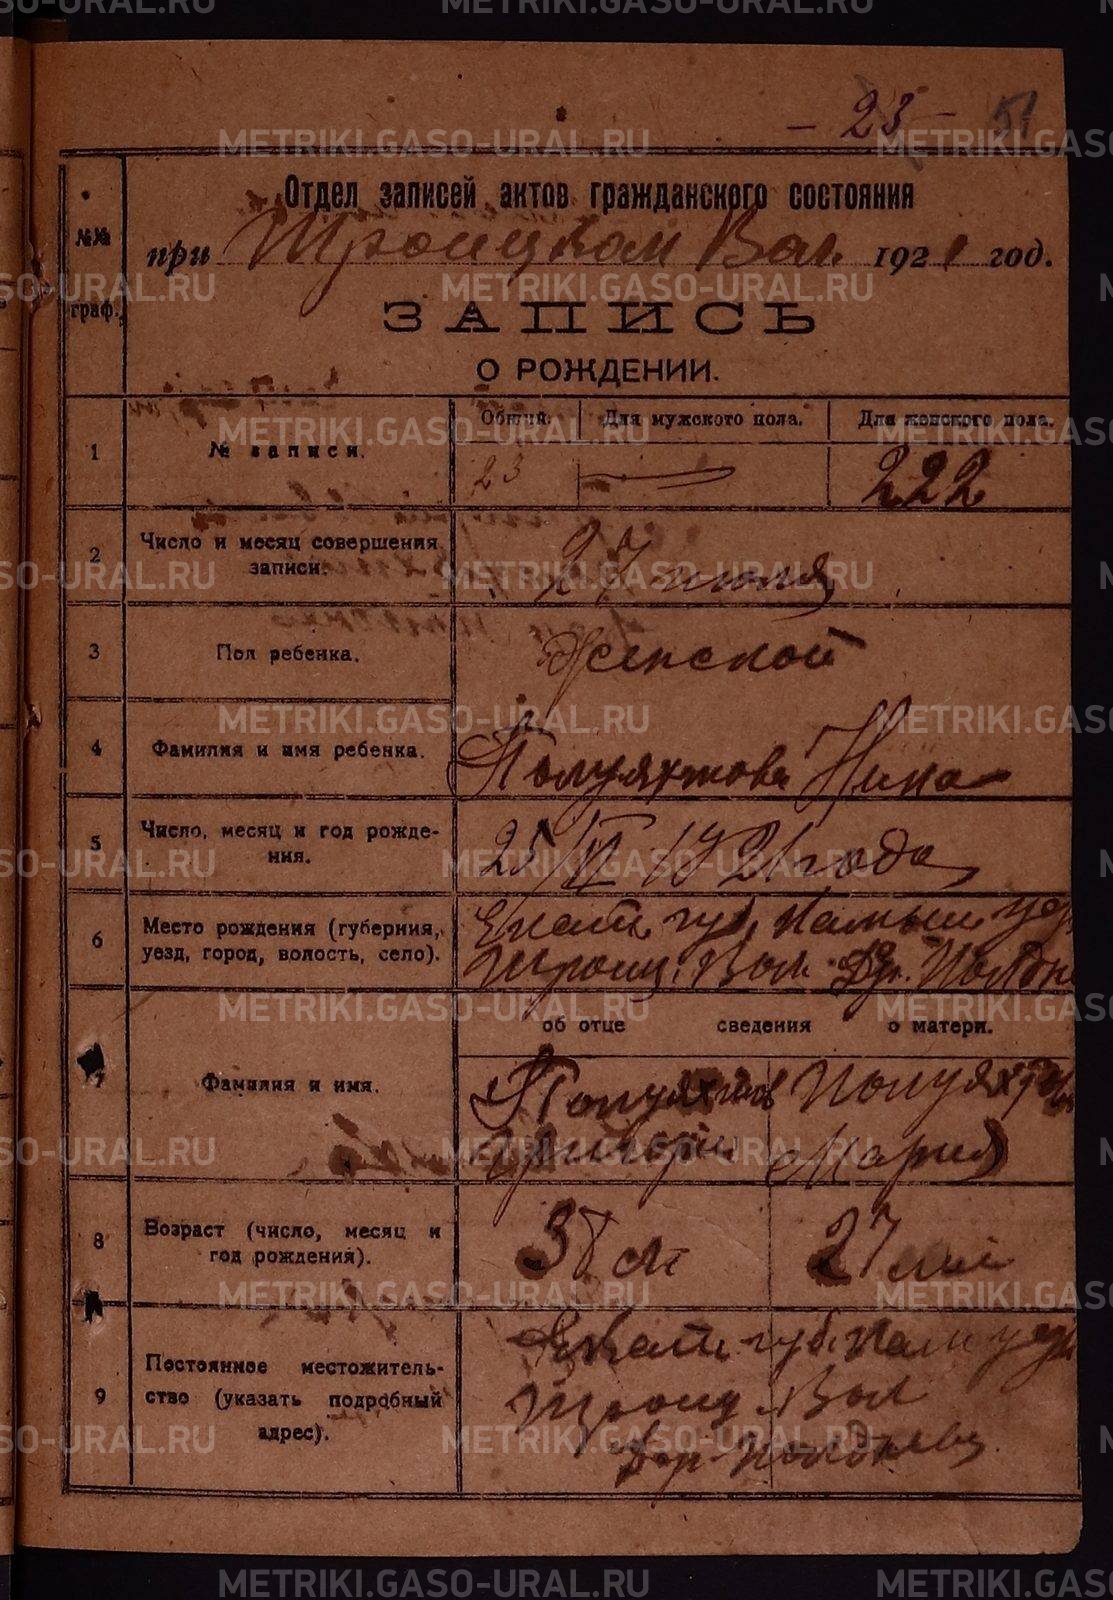 - 23 - 51
Отдел записей актов гражданского состояния
№№ граф.
при Троицком Вол. 1921 год.
ЗАПИСЬ
О РОЖДЕНИИ.
Общий. Для мужского пола. Для женского пола.
1 № записи. 23 — 222
2 Число и месяц совершения
записи. 27 июля
3 Пол ребенка. Женской
4 Фамилия и имя ребенка. Полуяхтова Нина
5 Число, месяц и год рожде-
ния. 25/VI 1921 года
6 Место рождения (губерния, Екат. губ. Камыш уез
уезд, город, волость, село). Троиц. Вол. Дер. Полдне
об отце сведения о матери.
7 Фамилия и имя. Полуяхтов Полуяхтова
Григорий Мария
8 Возраст (число, месяц и
год рождения). 38 л 27 лет
9 Постоянное местожитель- Екат. губ. Кам уезд
ство (указать подробный Троиц Вол
адрес). Дер. Полднева
METRIKI.GASO-URAL.RU